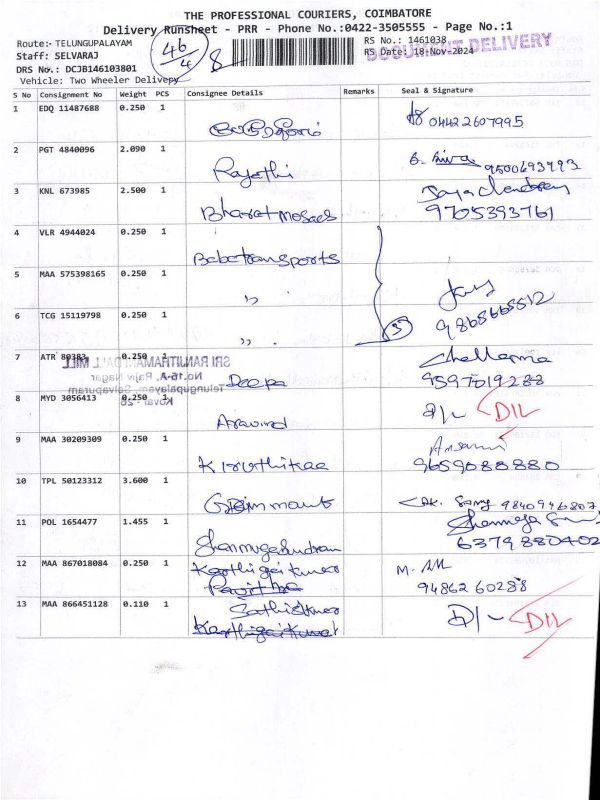 THE PROFESSIONAL COURIERS, COIMBATORE
Delivery Runsheet - PRR - Phone No.:0422-3505555 - Page No.:1
Route:- TELUNGUPALAYAM
46/4
8
RS No.: 1461038
DOCUMENT DELIVERY
Staff: SELVARAJ
RS Date: 18-Nov-2024
DRS No.: DCJB146103801
Vehicle: Two Wheeler Delivery
S No Consignment No Weight PCS Consignee Details Remarks Seal & Signature
1 EDQ 11487688 0.250 1 04422607995
2 PGT 4840096 2.090 1 Rajathi 9500693993
3 KNL 673985 2.500 1 9705393761
4 VLR 4944024 0.250 1 Babatransports
5 MAA 575398165 0.250 1 "
6 TCG 15119798 0.250 1 " 3 9865665512
7 ATR 80383 0.250 1 Deepa 9597019288
SRI RANJITHAM DALL MILL
No.16-A, Rajiv Nagar
Telungupalayam, Selvapuram
Kovai - 26
8 MYD 3056413 0.250 1 Aravind D/L DIL
9 MAA 30209309 0.250 1 Kiruthikaa 9659088880
10 TPL 50123312 3.600 1 9840946807
11 POL 1654477 1.455 1 Shanmugasundram 6379880402
12 MAA 867018084 0.250 1 Karthigaikumar Pavithra 9486260288
13 MAA 866451128 0.110 1 Sathiskumar Karthigaikumar D/L DIL